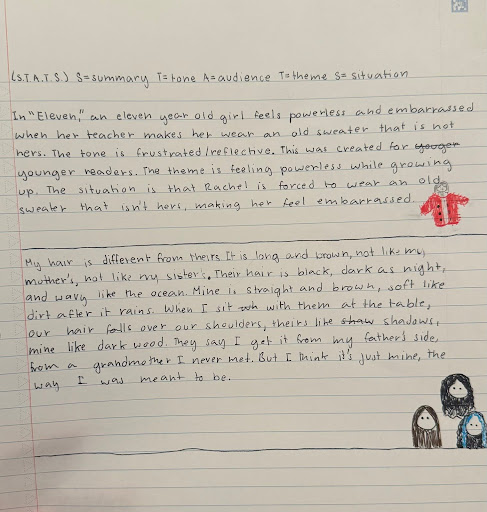 (S.T.A.T.S.) S=summary T=tone A=audience T=theme S=situation
In "Eleven," an eleven year old girl feels powerless and embarrassed
when her teacher makes her wear an old sweater that is not
hers. The tone is frustrated/reflective. This was created for youger
younger readers. The theme is feeling powerless while growing
up. The situation is that Rachel is forced to wear an old
sweater that isn't hers, making her feel embarrassed.
My hair is different from theirs. It is long and brown, not like my
mother's, not like my sister's. Their hair is black, dark as night,
and wavy like the ocean. Mine is straight and brown, soft like
dirt after it rains. When I sit with them at the table,
our hair falls over our shoulders, theirs like shadows,
mine like dark wood. They say I get it from my father's side,
from a grandmother I never met. But I think it's just mine, the
way I was meant to be.